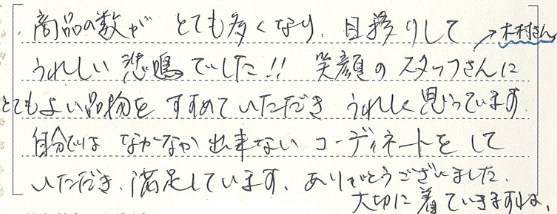 商品の数が とても多くなり、目移りして
→木村さん
うれしい 悲鳴でした!! 笑顔の スタッフさんに
とてもよい品物を すすめていただき うれしく思っています
自分では なかなか 出来ない コーディネートを して
いただき、満足しています。ありがとうございました。
大切に 着ていきますね。